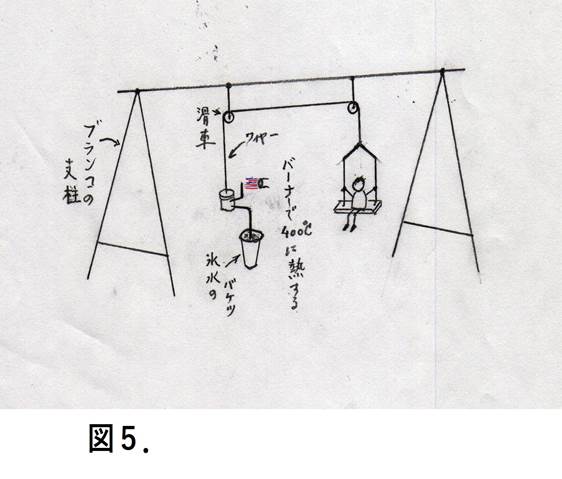 ブランコの
支柱
滑車
ワイヤー
バーナーで
400℃
に熱する
氷水の
バケツ
図5.